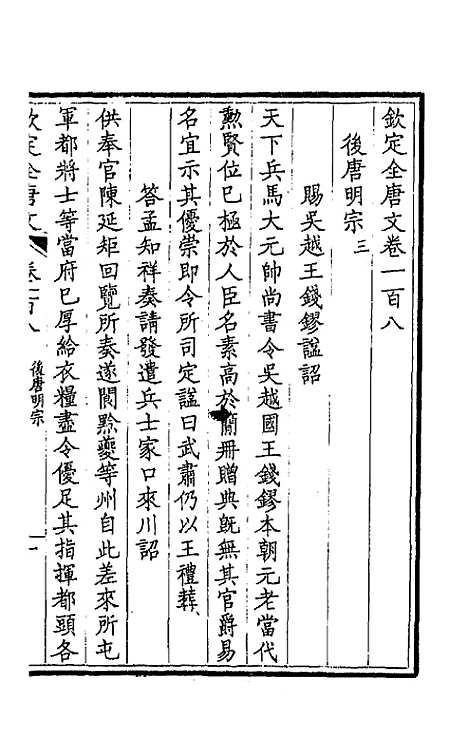 欽定全唐文卷一百八
後唐明宗 三
賜吳越王錢鏐諡詔
天下兵馬大元帥尚書令吳越國王錢鏐本朝元老當代
勲賢位已極於人臣名素高於簡冊贈典旣無其官爵易
名宜示其優崇即令所司定諡曰武肅仍以王禮葬
答孟知祥奏請發遣兵士家口來川詔
供奉官陳延矩回覽所奏遂閬黔夔等州自此差來所屯
軍都將士等當府已厚給衣糧盡令優足其指揮都頭各
欽定全唐文 卷一百八 後唐明宗 一